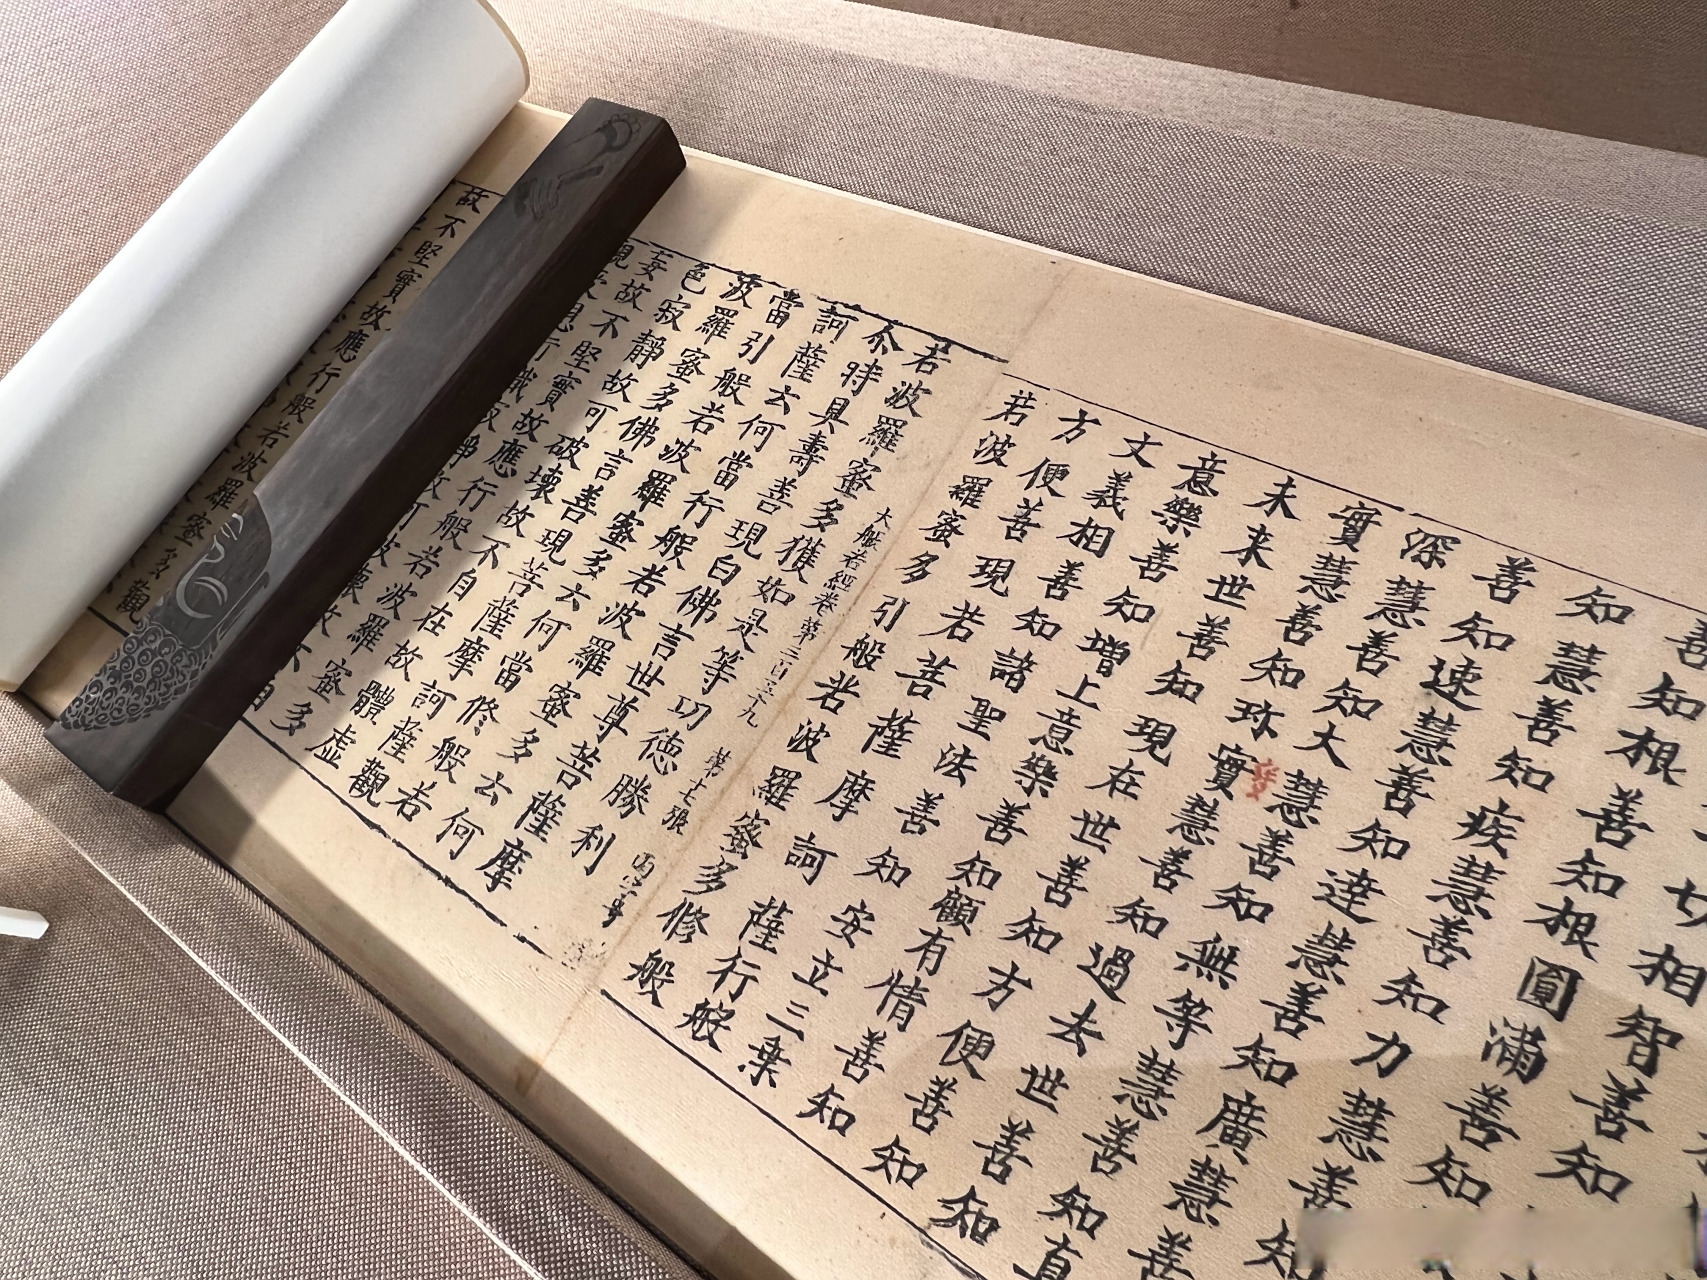 善知根善知根圓滿善知
切相智善知
知慧善知疾慧善知力慧善知
善知速慧善知達慧善知廣慧善
深慧善知大慧善知無等慧善知真
實慧善知珎實慧善知過去世善知
未來世善知現在世善知方便善知
意樂善知增上意樂善知顧有情善知
文義相善知諸聖法善知安立三乘
方便善現若菩薩摩訶薩行般
若波羅蜜多引般若波羅蜜多修般
大般若經卷第三百五十九 第七張
若波羅蜜多獲如是等功德勝利
尒時具壽善現白佛言世尊菩薩摩
訶薩云何當行般若波羅蜜多云何
當引般若波羅蜜多云何當修般若
波羅蜜多佛言善現菩薩摩訶薩觀
色寂靜故可破壞故不自在故體虛
妄故不堅實故應行般若波羅蜜多
故不堅實故應行般若波羅蜜多觀